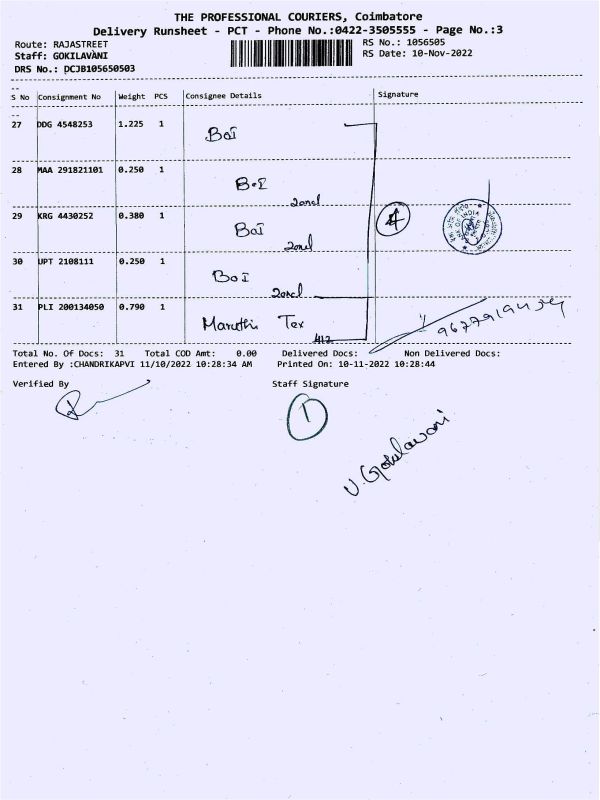 THE PROFESSIONAL COURIERS, Coimbatore
Delivery Runsheet - PCT - Phone No.:0422-3505555 - Page No.:3
Route: RAJASTREET
Staff: GOKILAVANI
DRS No.: DCJB105650503
RS No.: 1056505
RS Date: 10-Nov-2022
S No Consignment No Weight PCS Consignee Details Signature
27 DDG 4548253 1.225 1 BOI
28 MAA 291821101 0.250 1 B.O.I
zonal
29 KRG 4430252 0.380 1 BOI
zonal
4
30 UPT 2108111 0.250 1 BOI
zonal
31 PLI 200134050 0.790 1 Maruthi Tex
412
Total No. Of Docs: 31 Total COD Amt: 0.00 Delivered Docs: Non Delivered Docs:
Entered By :CHANDRIKAPVI 11/10/2022 10:28:34 AM Printed On: 10-11-2022 10:28:44
Verified By Staff Signature
1
V. Gokilavani